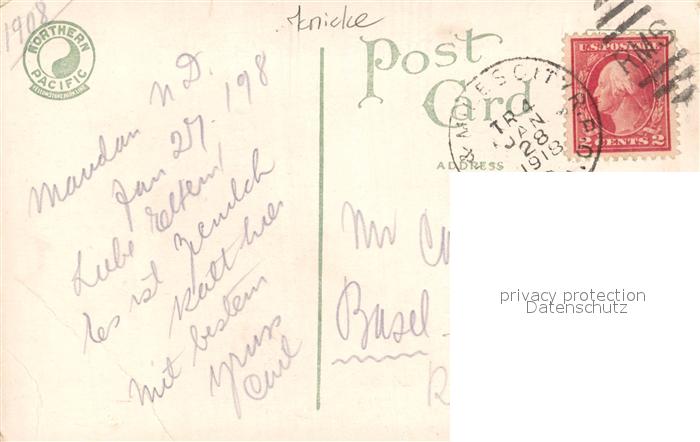 1908
NORTHERN
PACIFIC
YELLOWSTONE PARK LINE
Knicke
Post
Card
ADDRESS
U.S. POSTAGE
2 CENTS 2
RMS
MILES CITY R.P.O.
TR 4
JAN
28
1918
Mandan N D.
Jan 27. 198
Liebe Eltern,
Es ist zemlich
Kalt hier
Mit bestem
gruss
Emil
Mr
Basel
privacy protection
Datenschutz